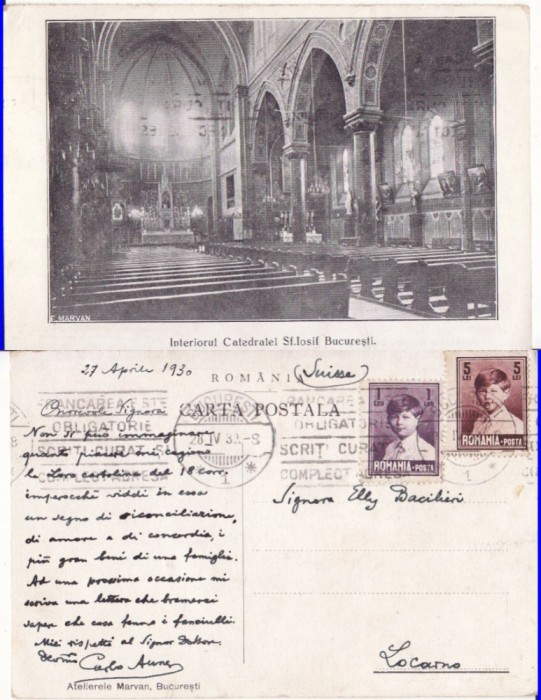 F. MARVAN
Interiorul Catedralei Sf.Iosif Bucureşti.
27 Aprile 1930
ROMÂNIA
(Suisse)
CARTA POSTALA
FRANCAREA ESTE
OBLIGATORIE
SCRIŢI CURAT SI
COMPLECT ADRESA
BUCURESTI
28 IV 30.-8
1
FRANCAREA ESTE
OBLIGATORIE
SCRIŢI CURAT SI
COMPLECT ADRESA
1 LEU 1 LEU
ROMANIA-POSTA
5 LEI 5 LEI
ROMANIA-POSTA
Onorevole Signora
Non si può immaginare
quanto piacere mi cagiona
la Loro cartolina del 18 corr.
imperocchè viddi in essa
un segno di riconciliazione,
di amore e di concordia, i
più gran beni di una famiglia.
Ad una prossima occasione mi
scriva una lettera che bramerei
saper che cosa fanno i fanciulli.
Miei rispetti al Signor
Carlo
Signora Elly Bacilieri
Locarno
Atelierele Marvan, Bucureşti